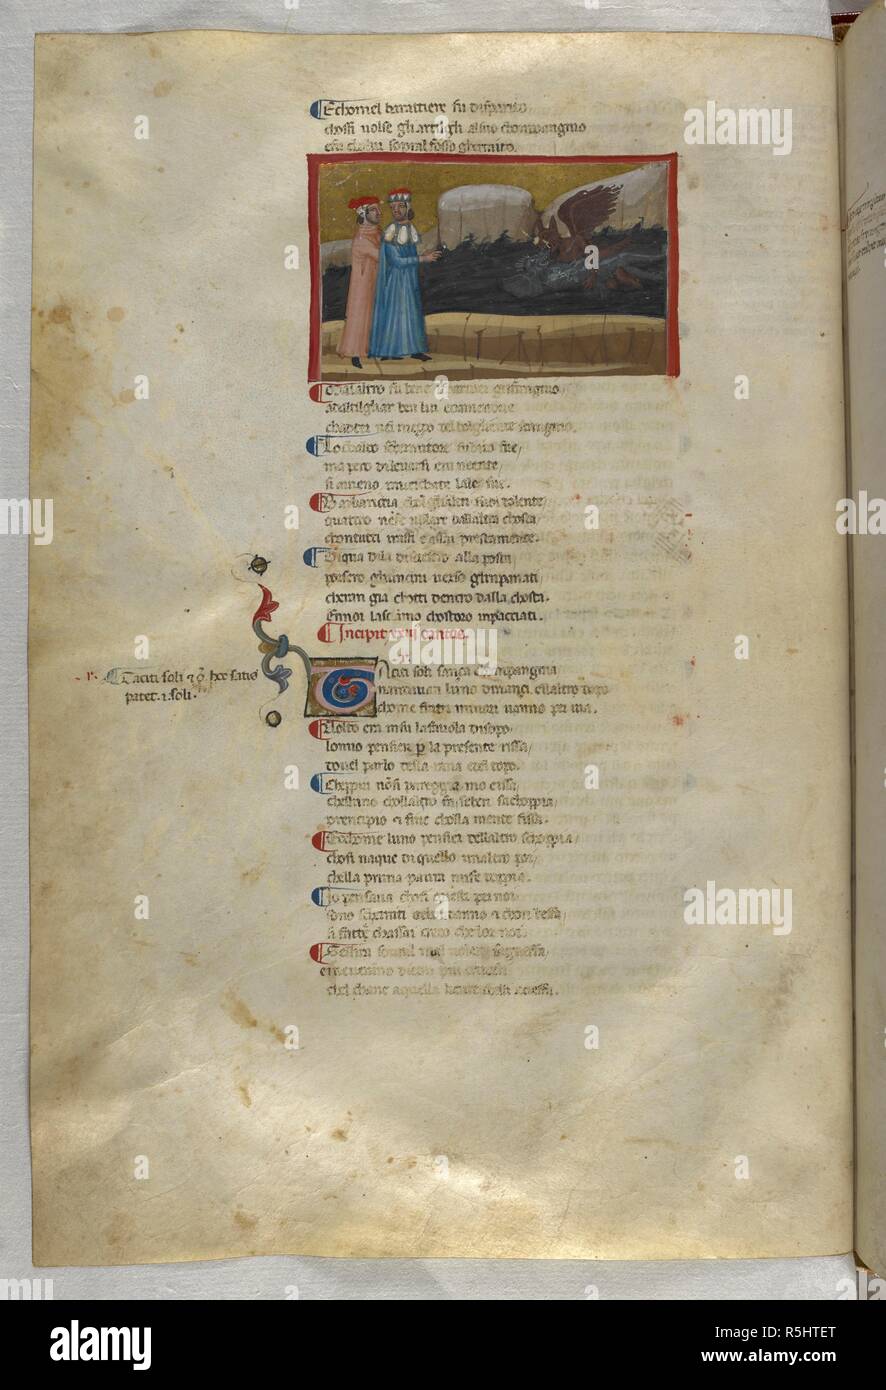 Echomel barattiere fu disparito
chosi uolse gliartigli alsuo chonpangnio
e fu chollui soural fosso ghermito.
Malaltro fu bene sparuier grifangnio
adartigliar ben lui e amendue
chadder nel mezzo del bogliente stangnio.
Lo chaldo schermitore subito fue
ma pero di leuarsi era neente
si aueano inuischate lale sue.
Barbariccia chongli altri suoi dolente
quattro ne fe uolare dallaltra chosta
chontutti rafi e assai prestamente.
Di qua di la disciesero alla posta
porsero gluncini uerso glimpaniati
cheran gia chotti dentro dalla chosta.
Ennoi lasciamo chostoro inpacciati.
Incipit xxiij cantus.
Taciti soli sança chonpangnia
nandauan luno dinançi e llaltro dopo
chome frati minori uanno per uia.
Taciti soli
patet. soli.
Volto era insu la fauola disopo
lo mio pensier per la presente rissa
douel parlo della rana e del topo.
Che piu non si pareggia mo e issa
chelluno chollaltro fa se ben sachoppia
prencipio e fine cholla mente fissa.
Echome luno pensier dellaltro schoppia
chosi naque di quello unaltro poi
chella prima paura mi fe doppia.
Io pensaua chosi questi per noi
sono scherniti chon danno e chon beffa
si fatta chassai credo che lor noi.
Se lira soural mal uoler sagueffa
ei ne uerranno dietro piu crudeli
chel chane a quella leure
alamy
a
alamy
www.alamy.com
Image ID: R5HTET